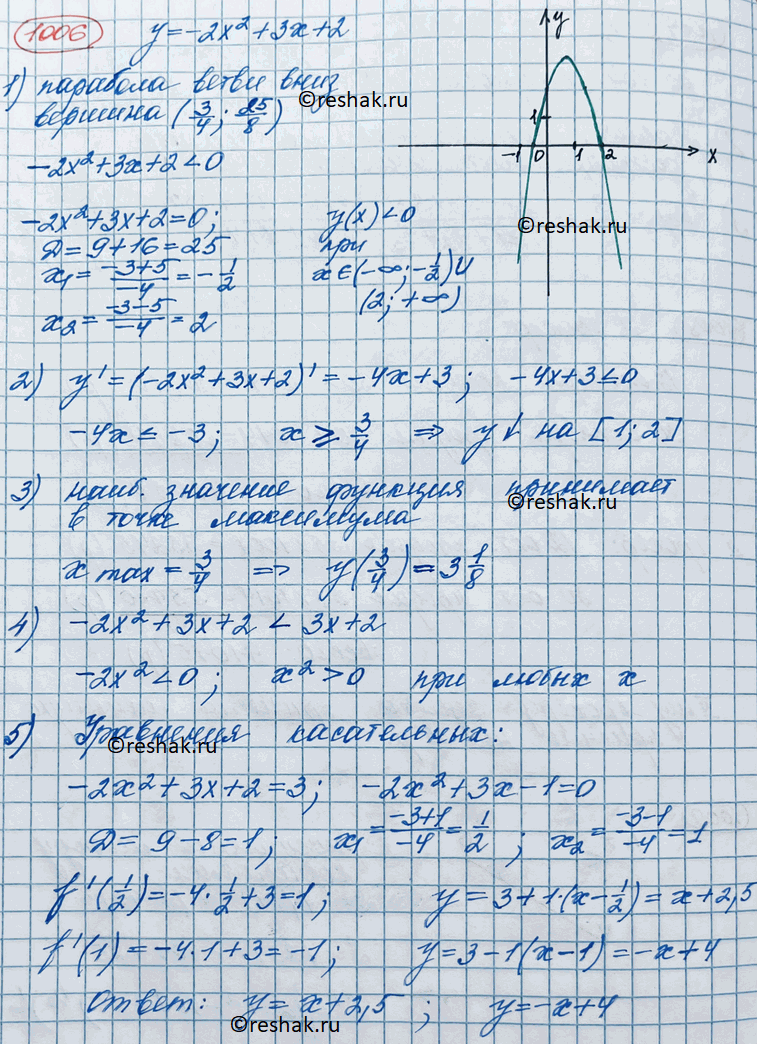 1006 y=-2x²+3x+2
1) парабола ветви вниз
вершина (3/4; 25/8)
-2x²+3x+2<0
y
1
-1 0 1 2 x
©reshak.ru
-2x²+3x+2=0; y(x)<0
D=9+16=25 при
x₁=(-3+5)/-4=-1/2 x∈(-∞;-1/2)U
x₂=(-3-5)/-4=2 (2;+∞)
©reshak.ru
2) y'=(-2x²+3x+2)'=-4x+3; -4x+3≤0
-4x≤-3; x≥3/4 ⇒ y↓ на [1;2]
3) наиб. значение функция принимает
в точке максимума
©reshak.ru
x max=3/4 ⇒ y(3/4)=3 1/8
4) -2x²+3x+2<3x+2
-2x²<0; x²>0 при любых x
5) Уравнения касательных:
©reshak.ru
-2x²+3x+2=3; -2x²+3x-1=0
D=9-8=1; x₁=(-3+1)/-4=1/2; x₂=(-3-1)/-4=1
f'(1/2)=-4·1/2+3=1; y=3+1·(x-1/2)=x+2,5
f'(1)=-4·1+3=-1; y=3-1(x-1)=-x+4
Ответ: y=x+2,5; y=-x+4
©reshak.ru